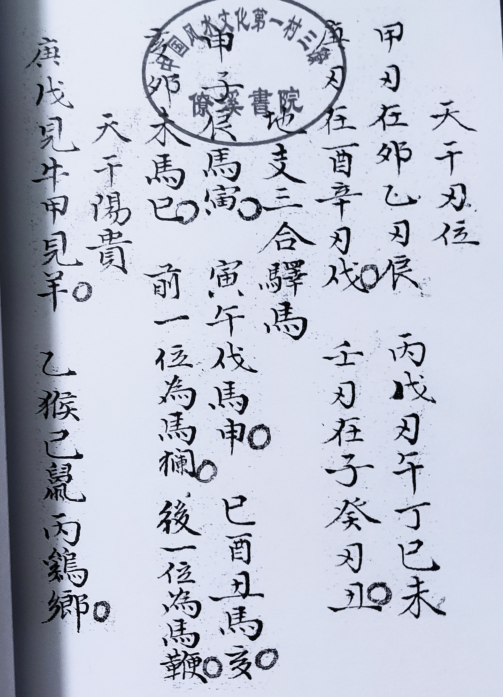 中国风水文化第一村三僚
僚溪書院
天干刃位
甲刃在卯乙刃辰 丙戊刃午丁巳未
庚刃在酉辛刃戌○ 壬刃在子癸刃丑○
地支三合驛馬
申子辰馬寅○ 寅午戌馬申○ 巳酉丑馬亥○
亥卯未馬巳○ 前一位為馬欄○ 後一位為馬鞭○
天干陽貴
庚戊見牛甲見羊○ 乙猴己鼠丙鷄鄉○